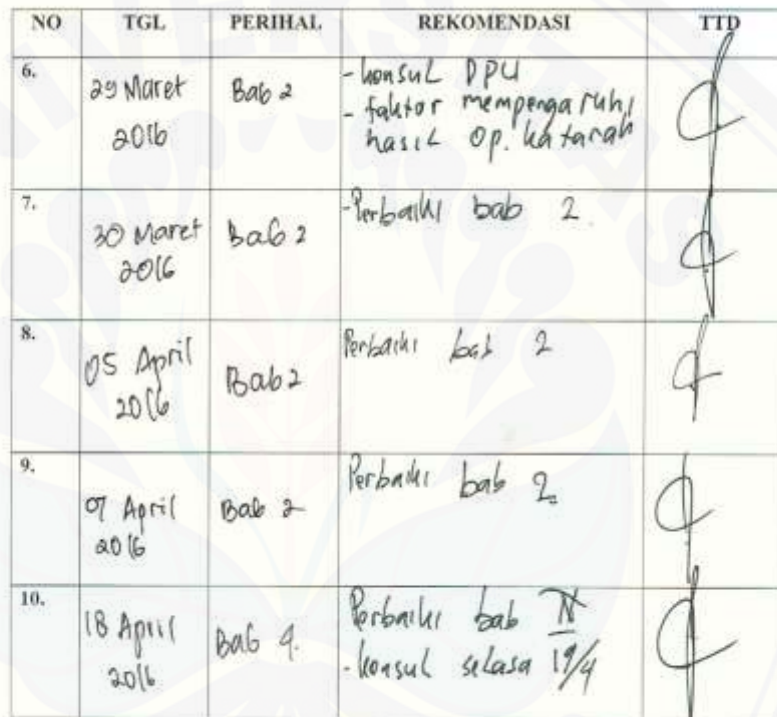 NO TGL PERIHAL REKOMENDASI TTD
6. 29 Maret 2016 Bab 2 - konsul DPU
- faktor mempengaruhi
hasil op. katarak
7. 30 Maret 2016 Bab 2 - Perbaiki bab 2
8. 05 April 2016 Bab 2 Perbaiki bab 2
9. 07 April 2016 Bab 2 Perbaiki bab 2
10. 18 April 2016 Bab 4. Perbaiki bab IV
- konsul selasa 19/4